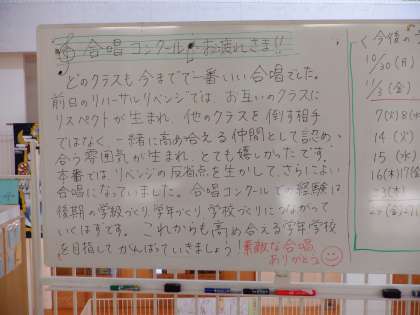 合唱コンクールお疲れさま!!
どのクラスも今までで一番いい合唱でした。
前日のリハーサルリベンジでは、お互いのクラスに
リスペクトが生まれ、他のクラスを倒す相手
ではなく、一緒に高め合える仲間として認め
合う雰囲気が生まれ、とても嬉しかったです。
本番では、リベンジの反省点を生かして、さらによい
合唱になっていました。合唱コンクールでの経験は
後期の学級づくり、学年づくり、学校づくりにつながって
いくはずです。これからも高め合える学年学校
を目指してがんばっていきましょう!
素敵な合唱
ありがとう
<今後の
10/30(月)
7(火)
14(火)
15(水)